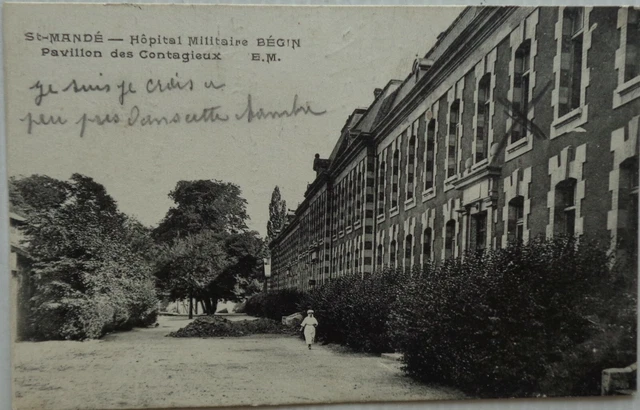 St-MANDÉ — Hôpital Militaire BÉGIN
Pavillon des Contagieux E.M.
je suis je crois a
peu près dans cette chambre